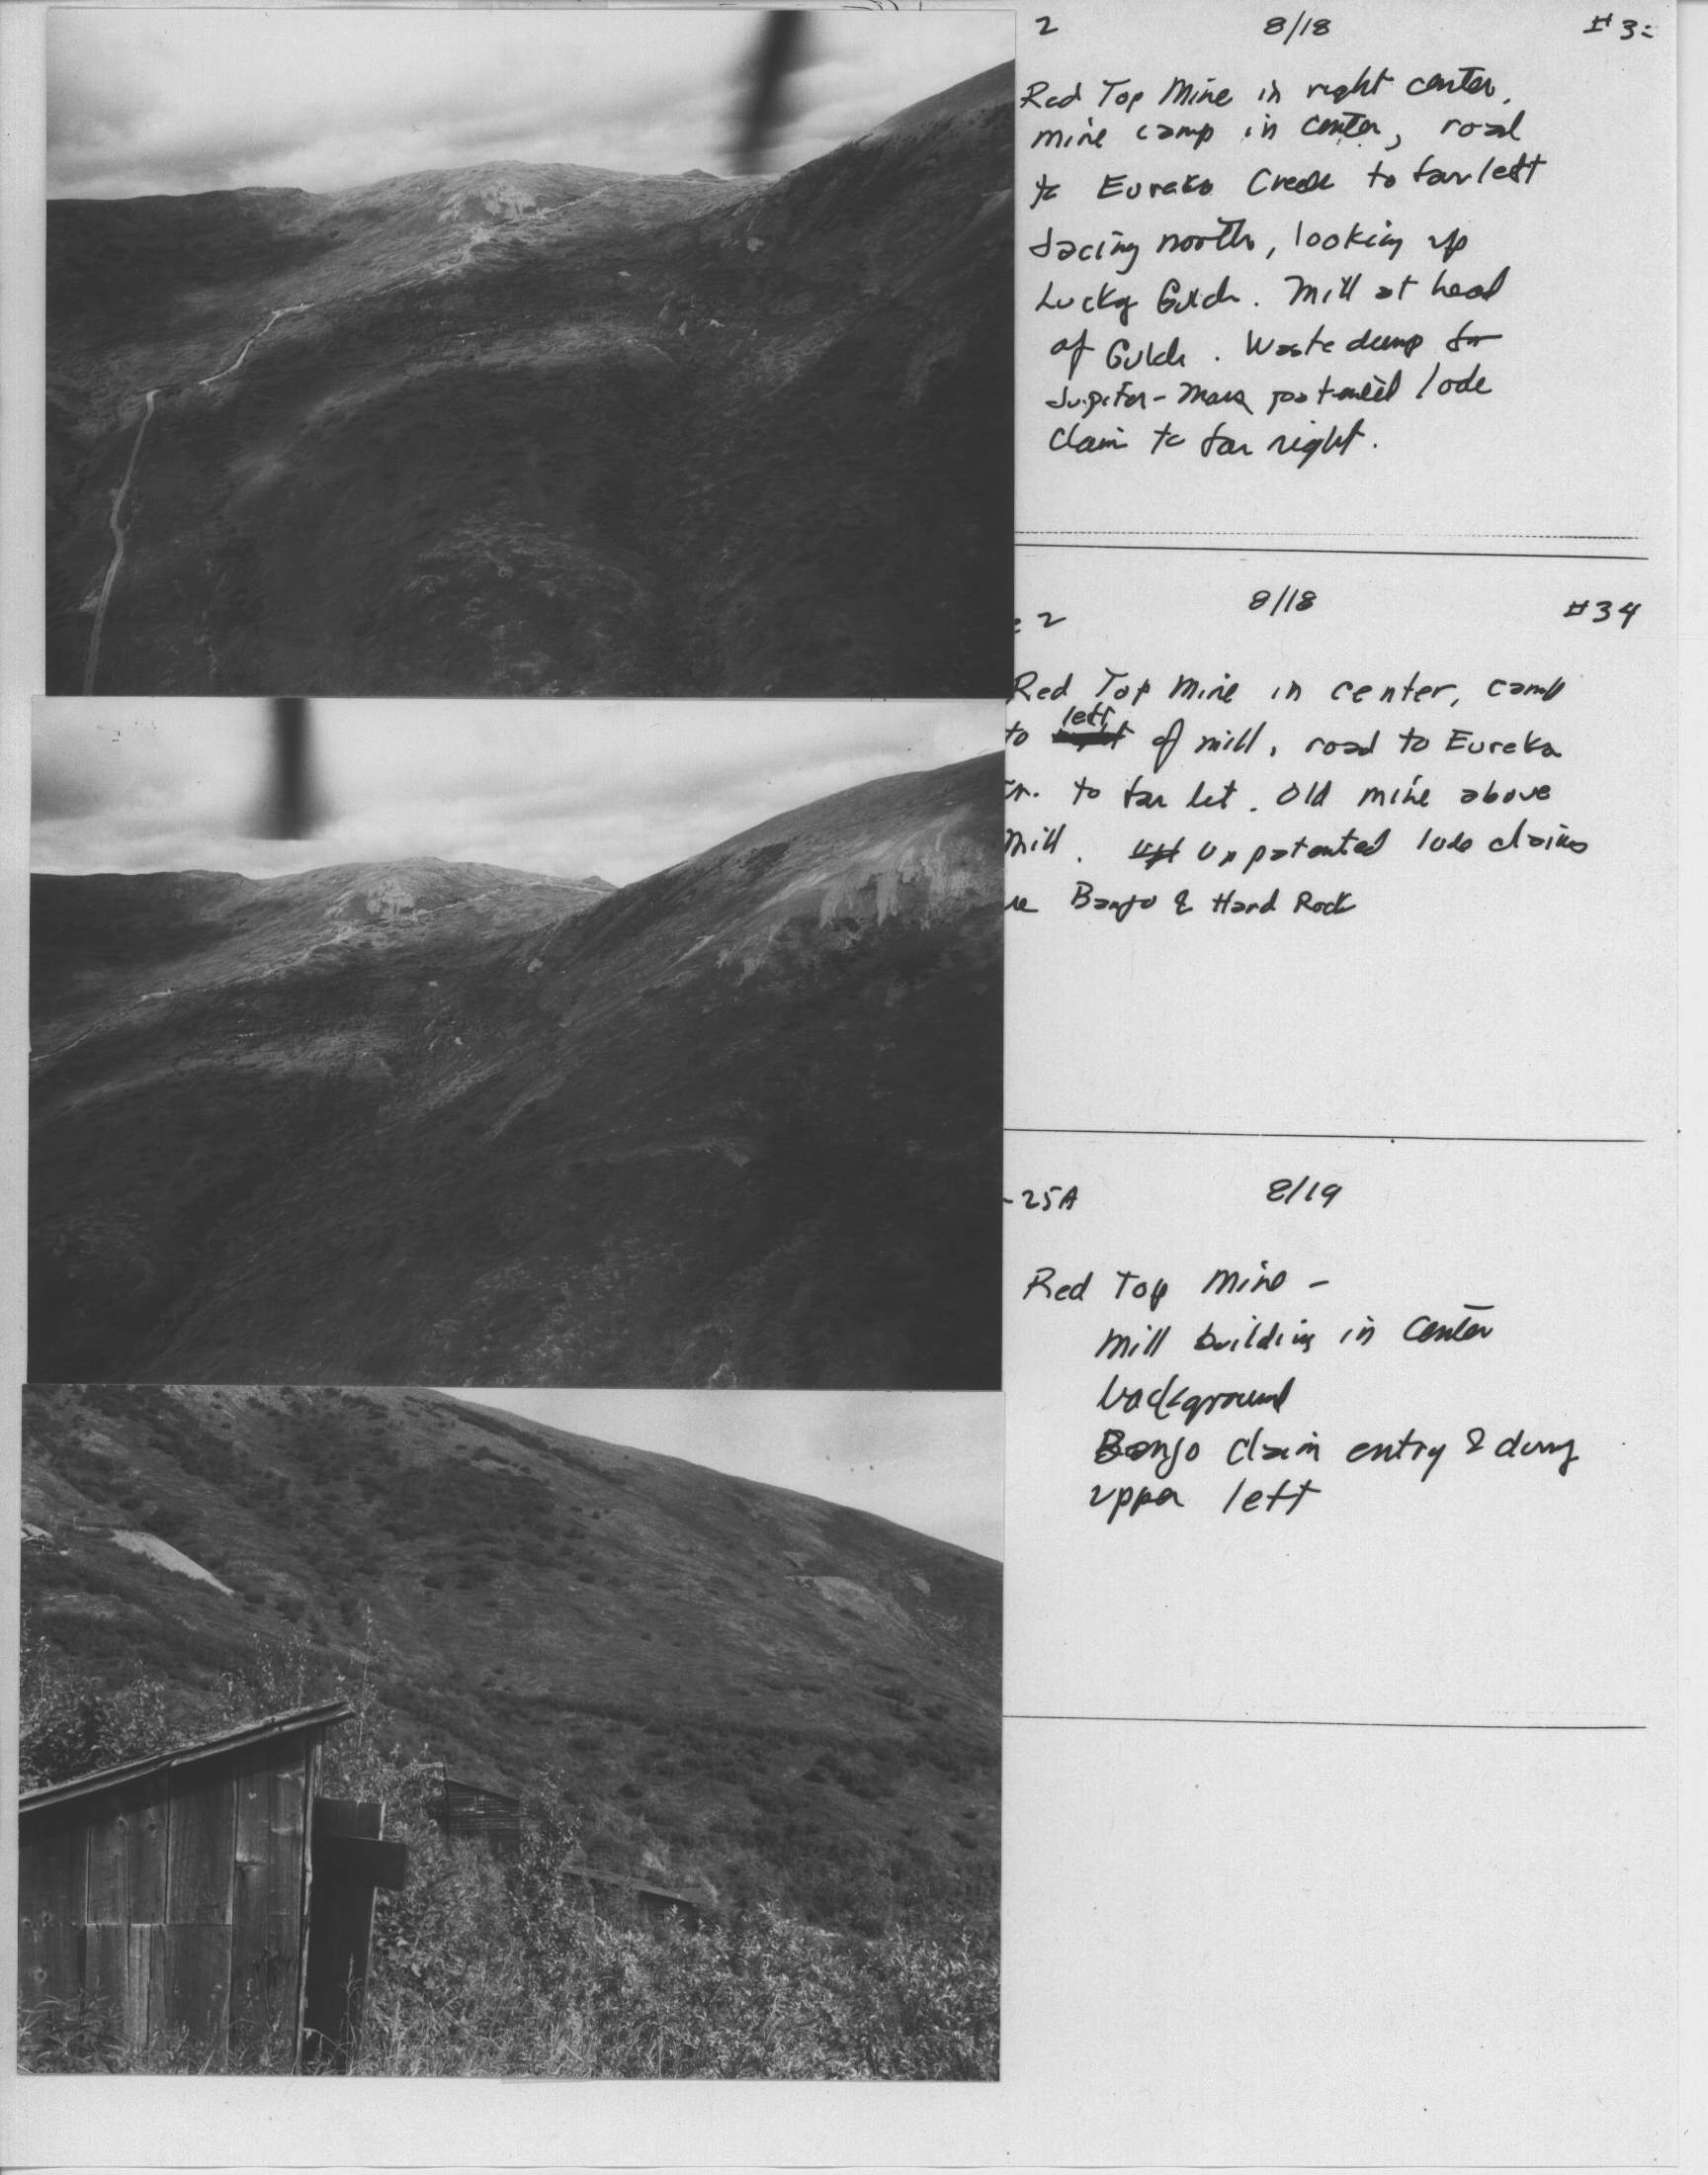 2 8/18 #3
Red Top Mine in right center,
mine camp in center, road
to Eureka Creek to far left
facing north, looking up
Lucky Gulch. Mill at head
of Gulch. Waste dump for
Jupiter-Mars patented lode
claim to far right.
2 8/18 #34
Red Top Mine in center, camp
left
to of mill, road to Eureka
Cr. to far left. Old mine above
Mill. Unpatented lode claims
Banjo & Hard Rock
-25A 8/19
Red Top Mine -
Mill building in center
background
Banjo claim entry & dump
upper left